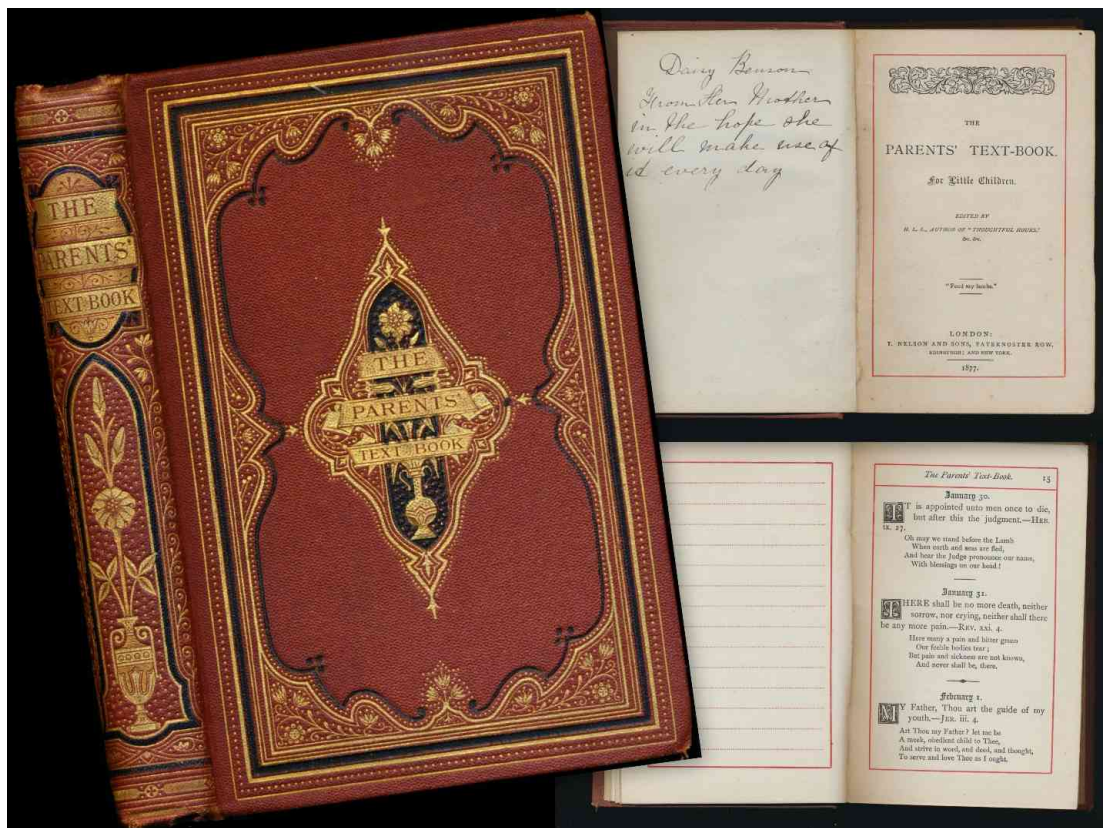 THE
PARENTS'
TEXT-BOOK
THE
PARENTS'
TEXT BOOK
Daisy Benson
From Her Mother
in the hope she
will make use of
it every day
THE
PARENTS' TEXT-BOOK.
For Little Children.
EDITED BY
H. L. L., AUTHOR OF "THOUGHTFUL HOURS,"
&c. &c.
"Feed my lambs."
LONDON:
T. NELSON AND SONS, PATERNOSTER ROW,
EDINBURGH; AND NEW YORK.
1877.
The Parents' Text-Book. 15
January 30.
IT is appointed unto men once to die,
but after this the judgment.—HEB.
ix. 27.
Oh may we stand before the Lamb
When earth and seas are fled,
And hear the Judge pronounce our name,
With blessings on our head!
January 31.
THERE shall be no more death, neither
sorrow, nor crying, neither shall there
be any more pain.—REV. xxi. 4.
Here many a pain and bitter groan
Our feeble bodies tear;
But pain and sickness are not known,
And never shall be, there.
February 1.
MY Father, Thou art the guide of my
youth.—JER. iii. 4.
Art Thou my Father? let me be
A meek, obedient child to Thee,
And strive in word, and deed, and thought,
To serve and love Thee as I ought.